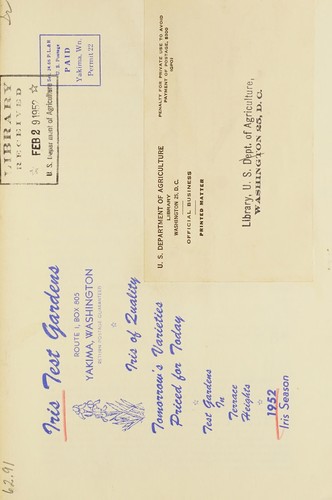 Iris Test Gardens
ROUTE 1, BOX 805
YAKIMA, WASHINGTON
RETURN POSTAGE GUARANTEED
Iris of Quality
Tomorrow's Varieties
Priced for Today
Test Gardens
In
Terrace
Heights
1952
Iris Season
LIBRARY
RECEIVED
FEB 29 1952
U. S. Department of Agriculture
Sec. 34.66 P.L.&R.
U.S. Postage
PAID
Yakima, Wn.
Permit 22
U. S. DEPARTMENT OF AGRICULTURE
LIBRARY
WASHINGTON 25, D. C.
OFFICIAL BUSINESS
PRINTED MATTER
PENALTY FOR PRIVATE USE TO AVOID
PAYMENT OF POSTAGE, $300
(GPO)
Library, U. S. Dept. of Agriculture,
WASHINGTON 25, D. C.
62.91